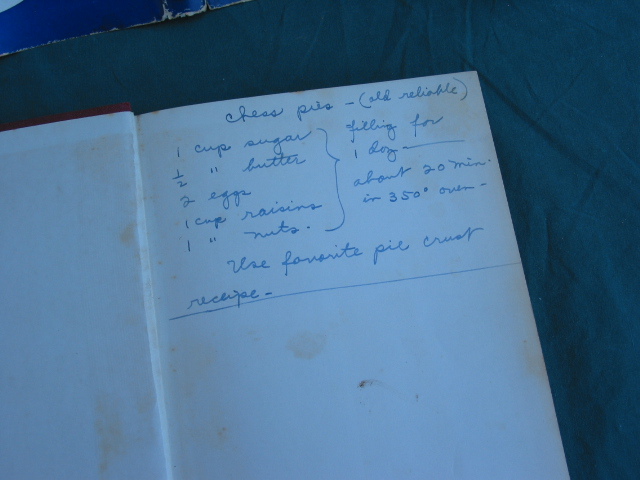 chess pies - (old reliable)
1 cup sugar
1/2 " butter
2 eggs
1 cup raisins
1 " nuts.
filling for
1 doz -
about 20 min.
in 350° oven -
Use favorite pie crust
receipe -